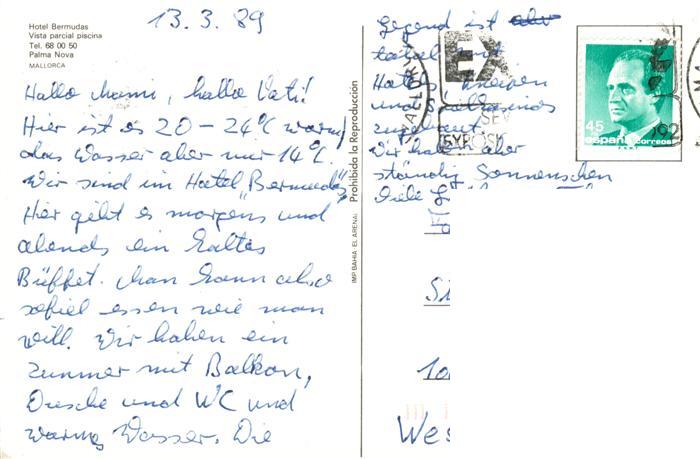 Hotel Bermudas
Vista parcial piscina
Tel. 68 00 50
Palma Nova
MALLORCA
13. 3. 89
Hallo Mami, hallo Vati!
Hier ist es 20 – 24°C warm,
das Wasser aber nur 14°C.
Wir sind im Hotel „Bermudas“,
Hier gibt es morgens und
abends ein kaltes
Büffet. Man kann also
sofiel essen wie man
will. Wir haben ein
Zimmer mit Balkon,
Dusche und WC und
warmes Wasser. Die
Gegend ist
total mit
Hotel
und
zugebaut
Wir haben aber
ständig Sonnenschen
Viele
IMP. BAHIA EL ARENAL
Prohibida la Reproducción
MALLORCA
EX
SEV
EXPOSIC
92
45
españa correos
Si
Wes